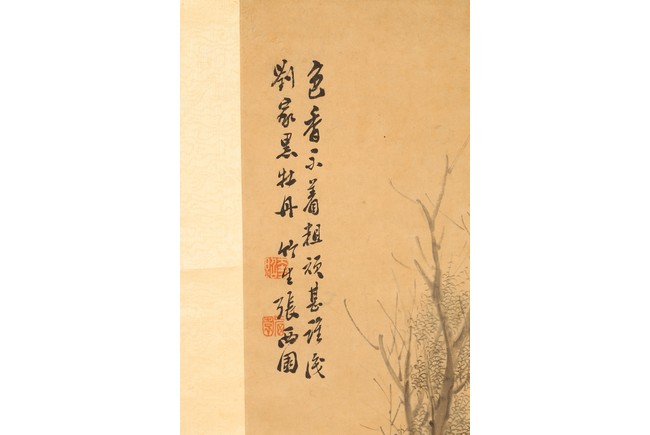 色香不着粗頑甚誰識
劉家黒牡丹 竹生張西園